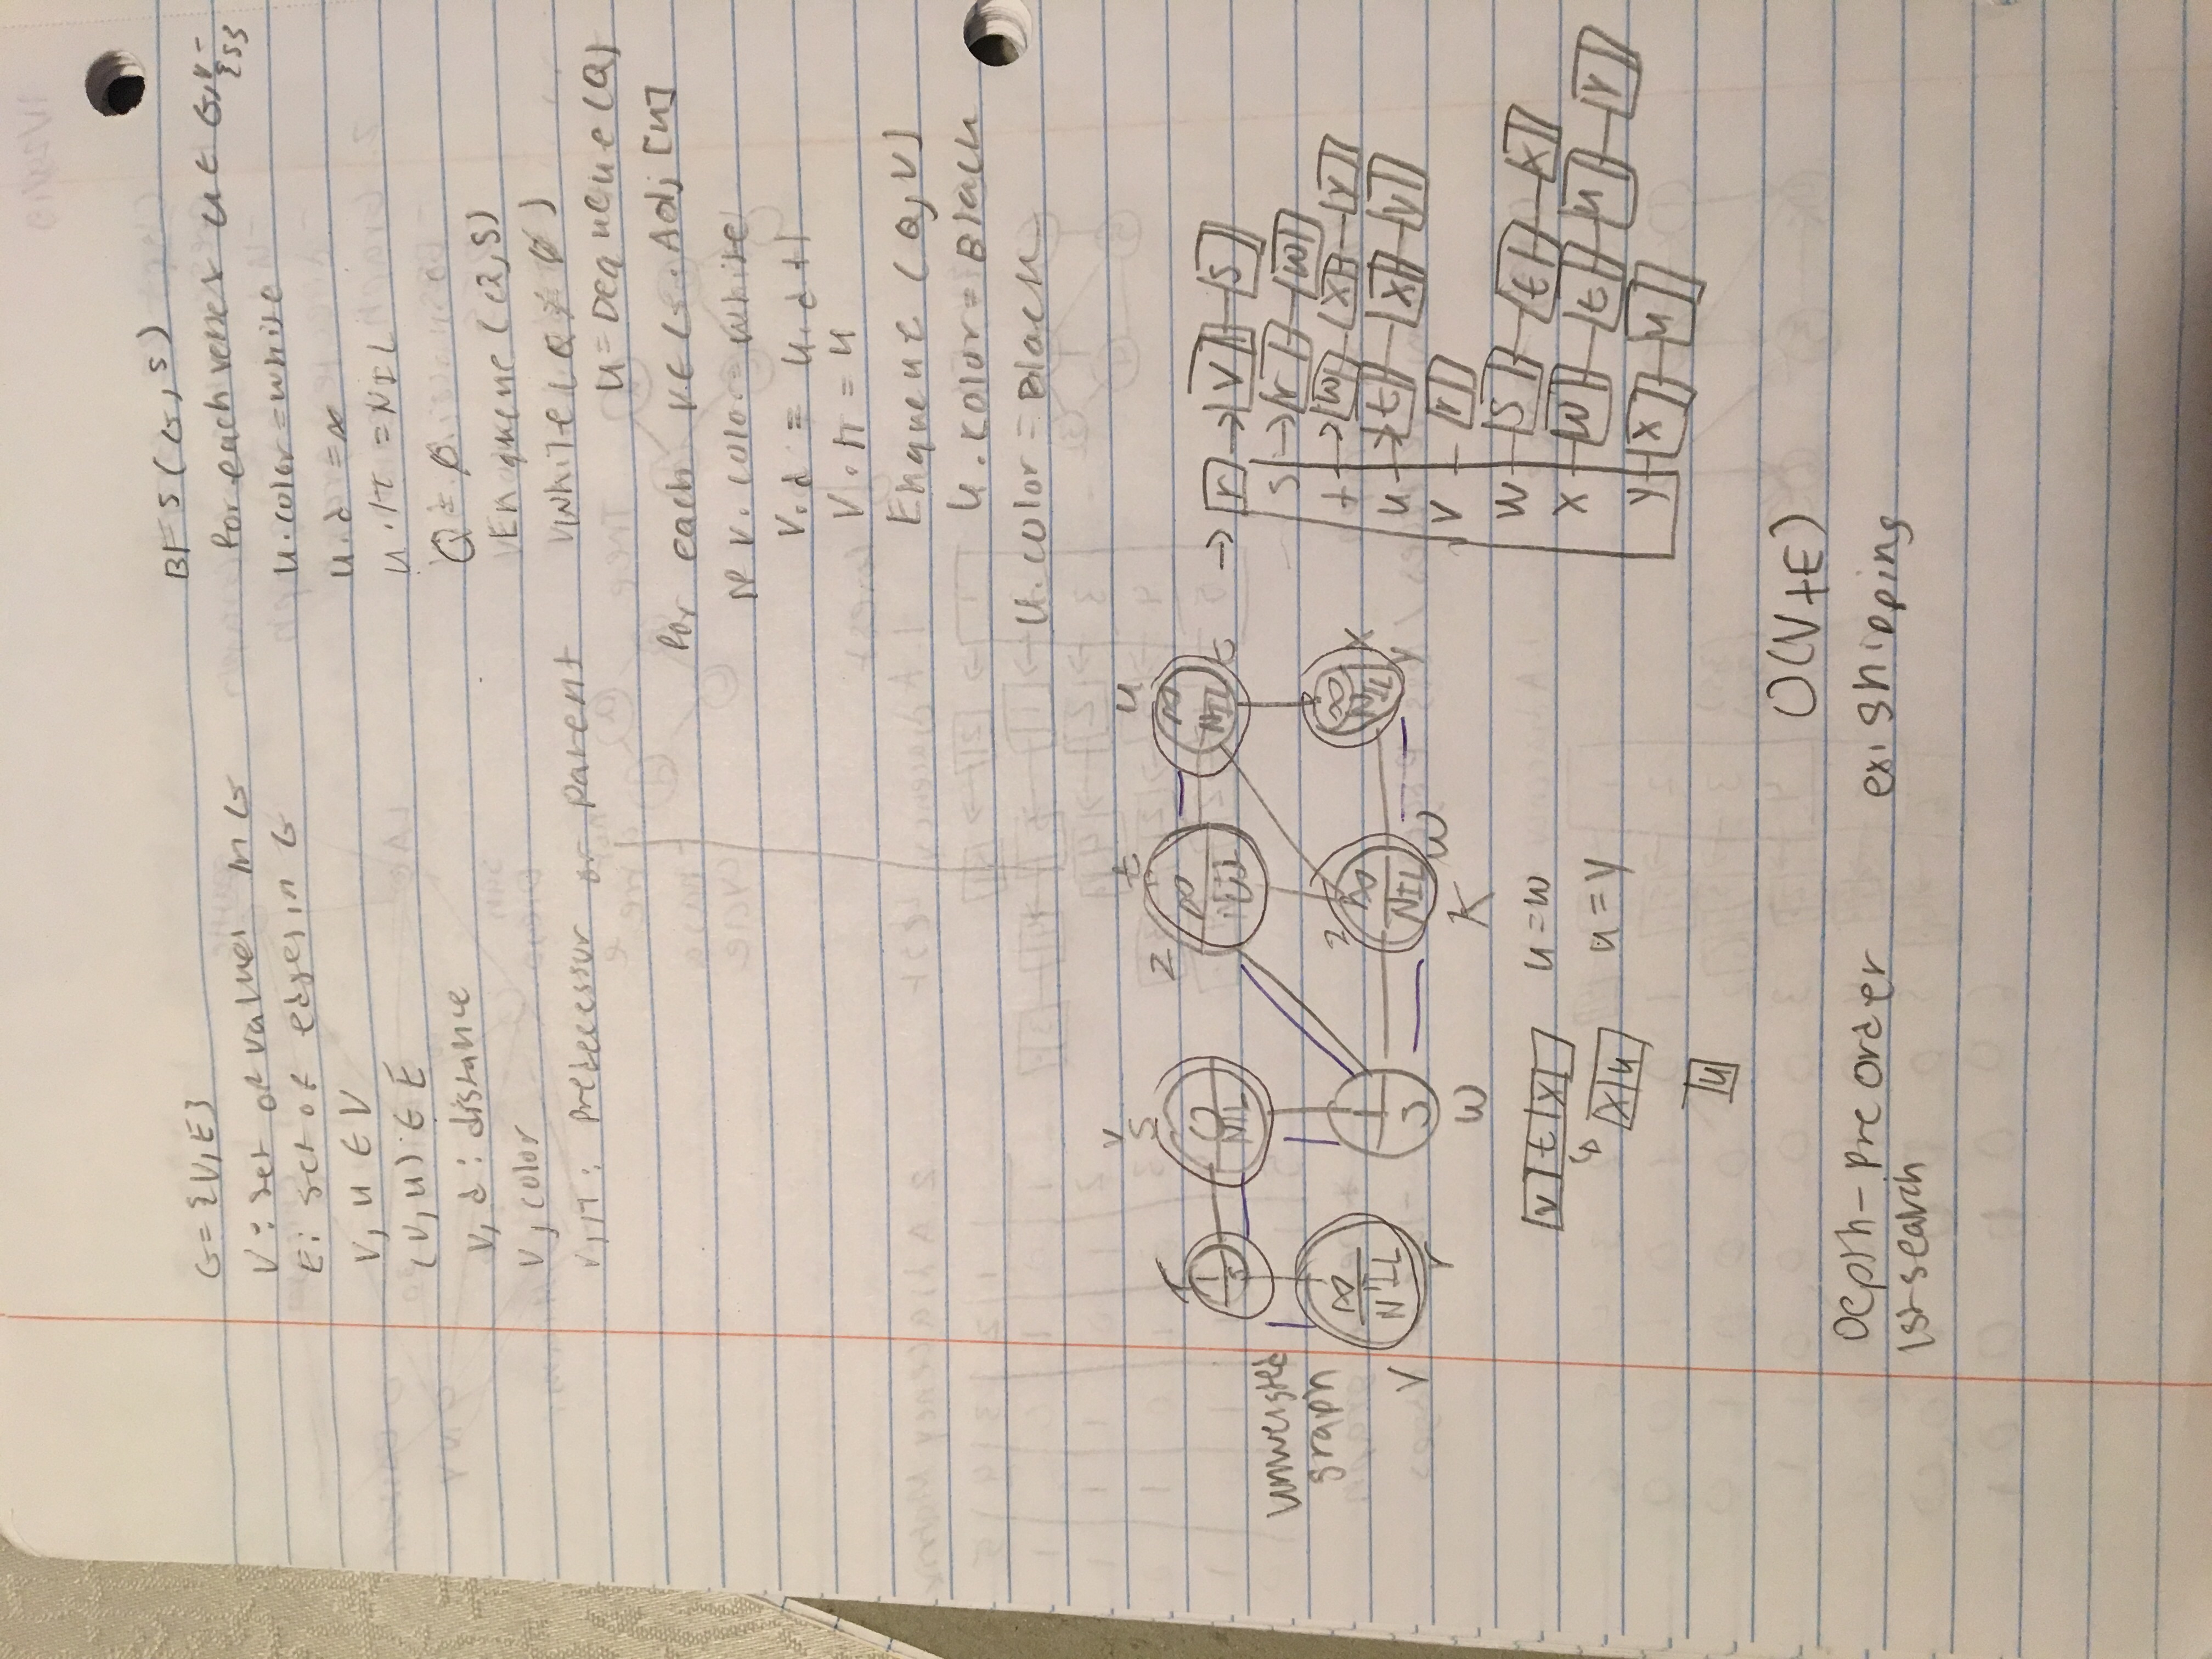 G = {V, E}
V : set of values in G
E : set of edges in G
V, u ∈ V
(V, u) ∈ E
V, d : distance
V, color
V, π : Predecessor or parent
BFS (G, S)
For each vertex u ∈ G, V - {S}
u.color = white
u.d = ∞
u.π = NIL
Q = ∅
Enqueue (Q, S)
While (Q ≠ ∅)
u = Dequeue (Q)
For each V ∈ G.Adj [u]
If V.color = white
V.d = u.d + 1
V.π = u
Enqueue (Q, V)
u.color = Black
u.color = Black
v
r S 2 t u
1 0 ∞ ∞
s NIL NIL NIL t
unweighted
graph
2
∞ 1 ∞ ∞ x
NIL S NIL NIL
V r w K w y
→ r → V S
S → r w
t → w x y
u → t x y
V r
w S t x
x w t u y
y x u
v t x u = w
↳
x u u = y
u
O(V+E)
Depth - Pre Order ex: shipping
1st search